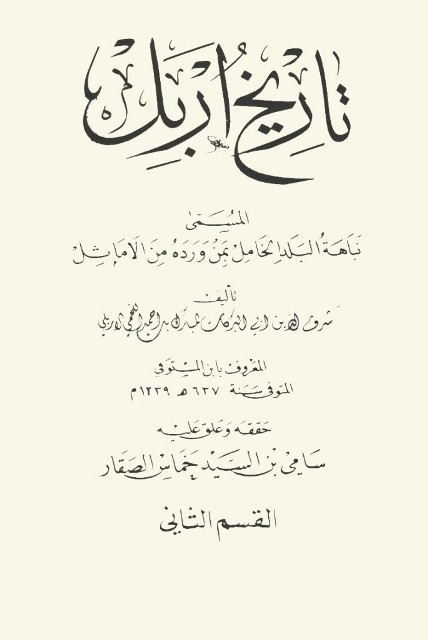 تاريخ اربل
المسمى
نباهة البلد الخامل بمن ورده من الاماثل
تأليف
شرف الدين ابي البركات المبارك بن احمد اللخمي الاربلي
المعروف بابن المستوفي
المتوفى سنة ٦٣٧ هـ ١٢٣٩م
حققه وعلق عليه
سامي بن السيد خماس الصقار
القسم الثاني